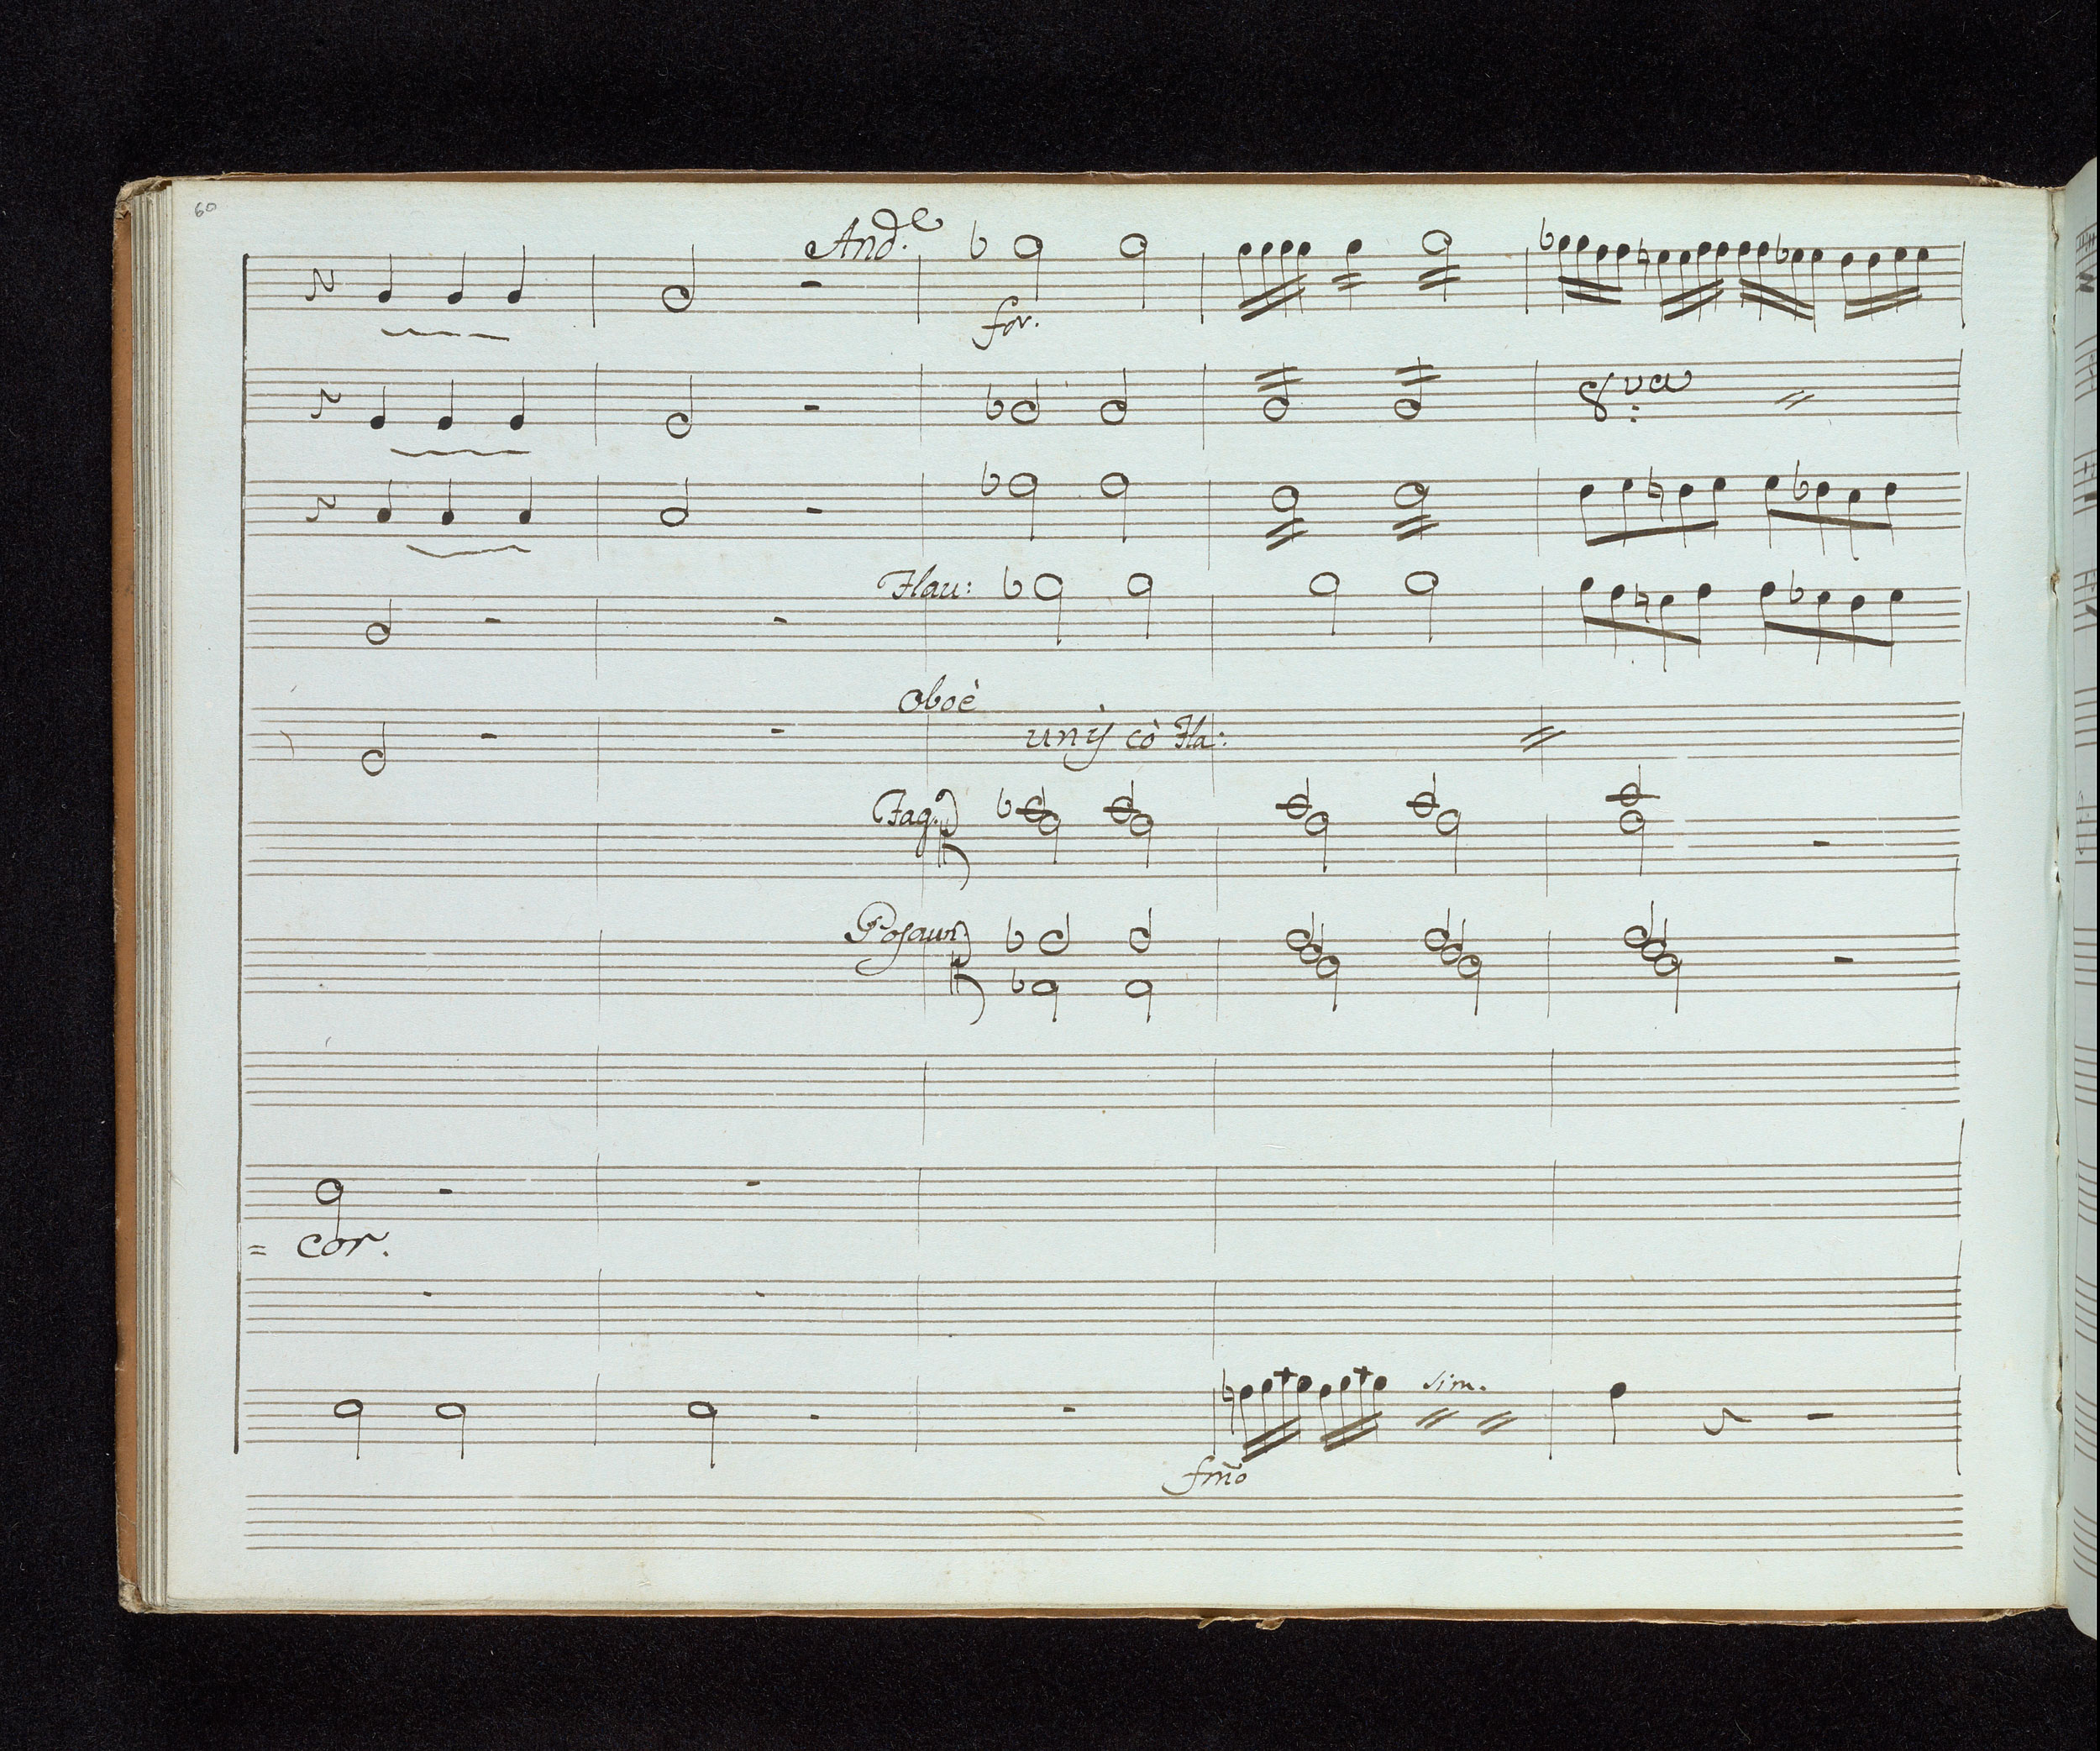 60
And.e
for.
8va
Flau:
Oboè
unÿ cò Fla:
Fag:
Posaun
= cor.
sim.
fm̃o